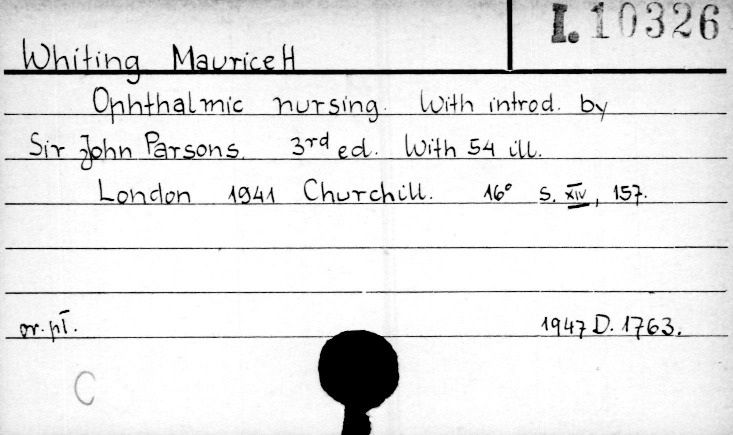 I. 10326
Whiting Maurice H
Ophthalmic nursing. With introd. by
Sir John Parsons. 3rd ed. With 54 ill.
London 1941 Churchill. 16° s. XIV, 157.
or. pł. 1947 D. 1763.
C